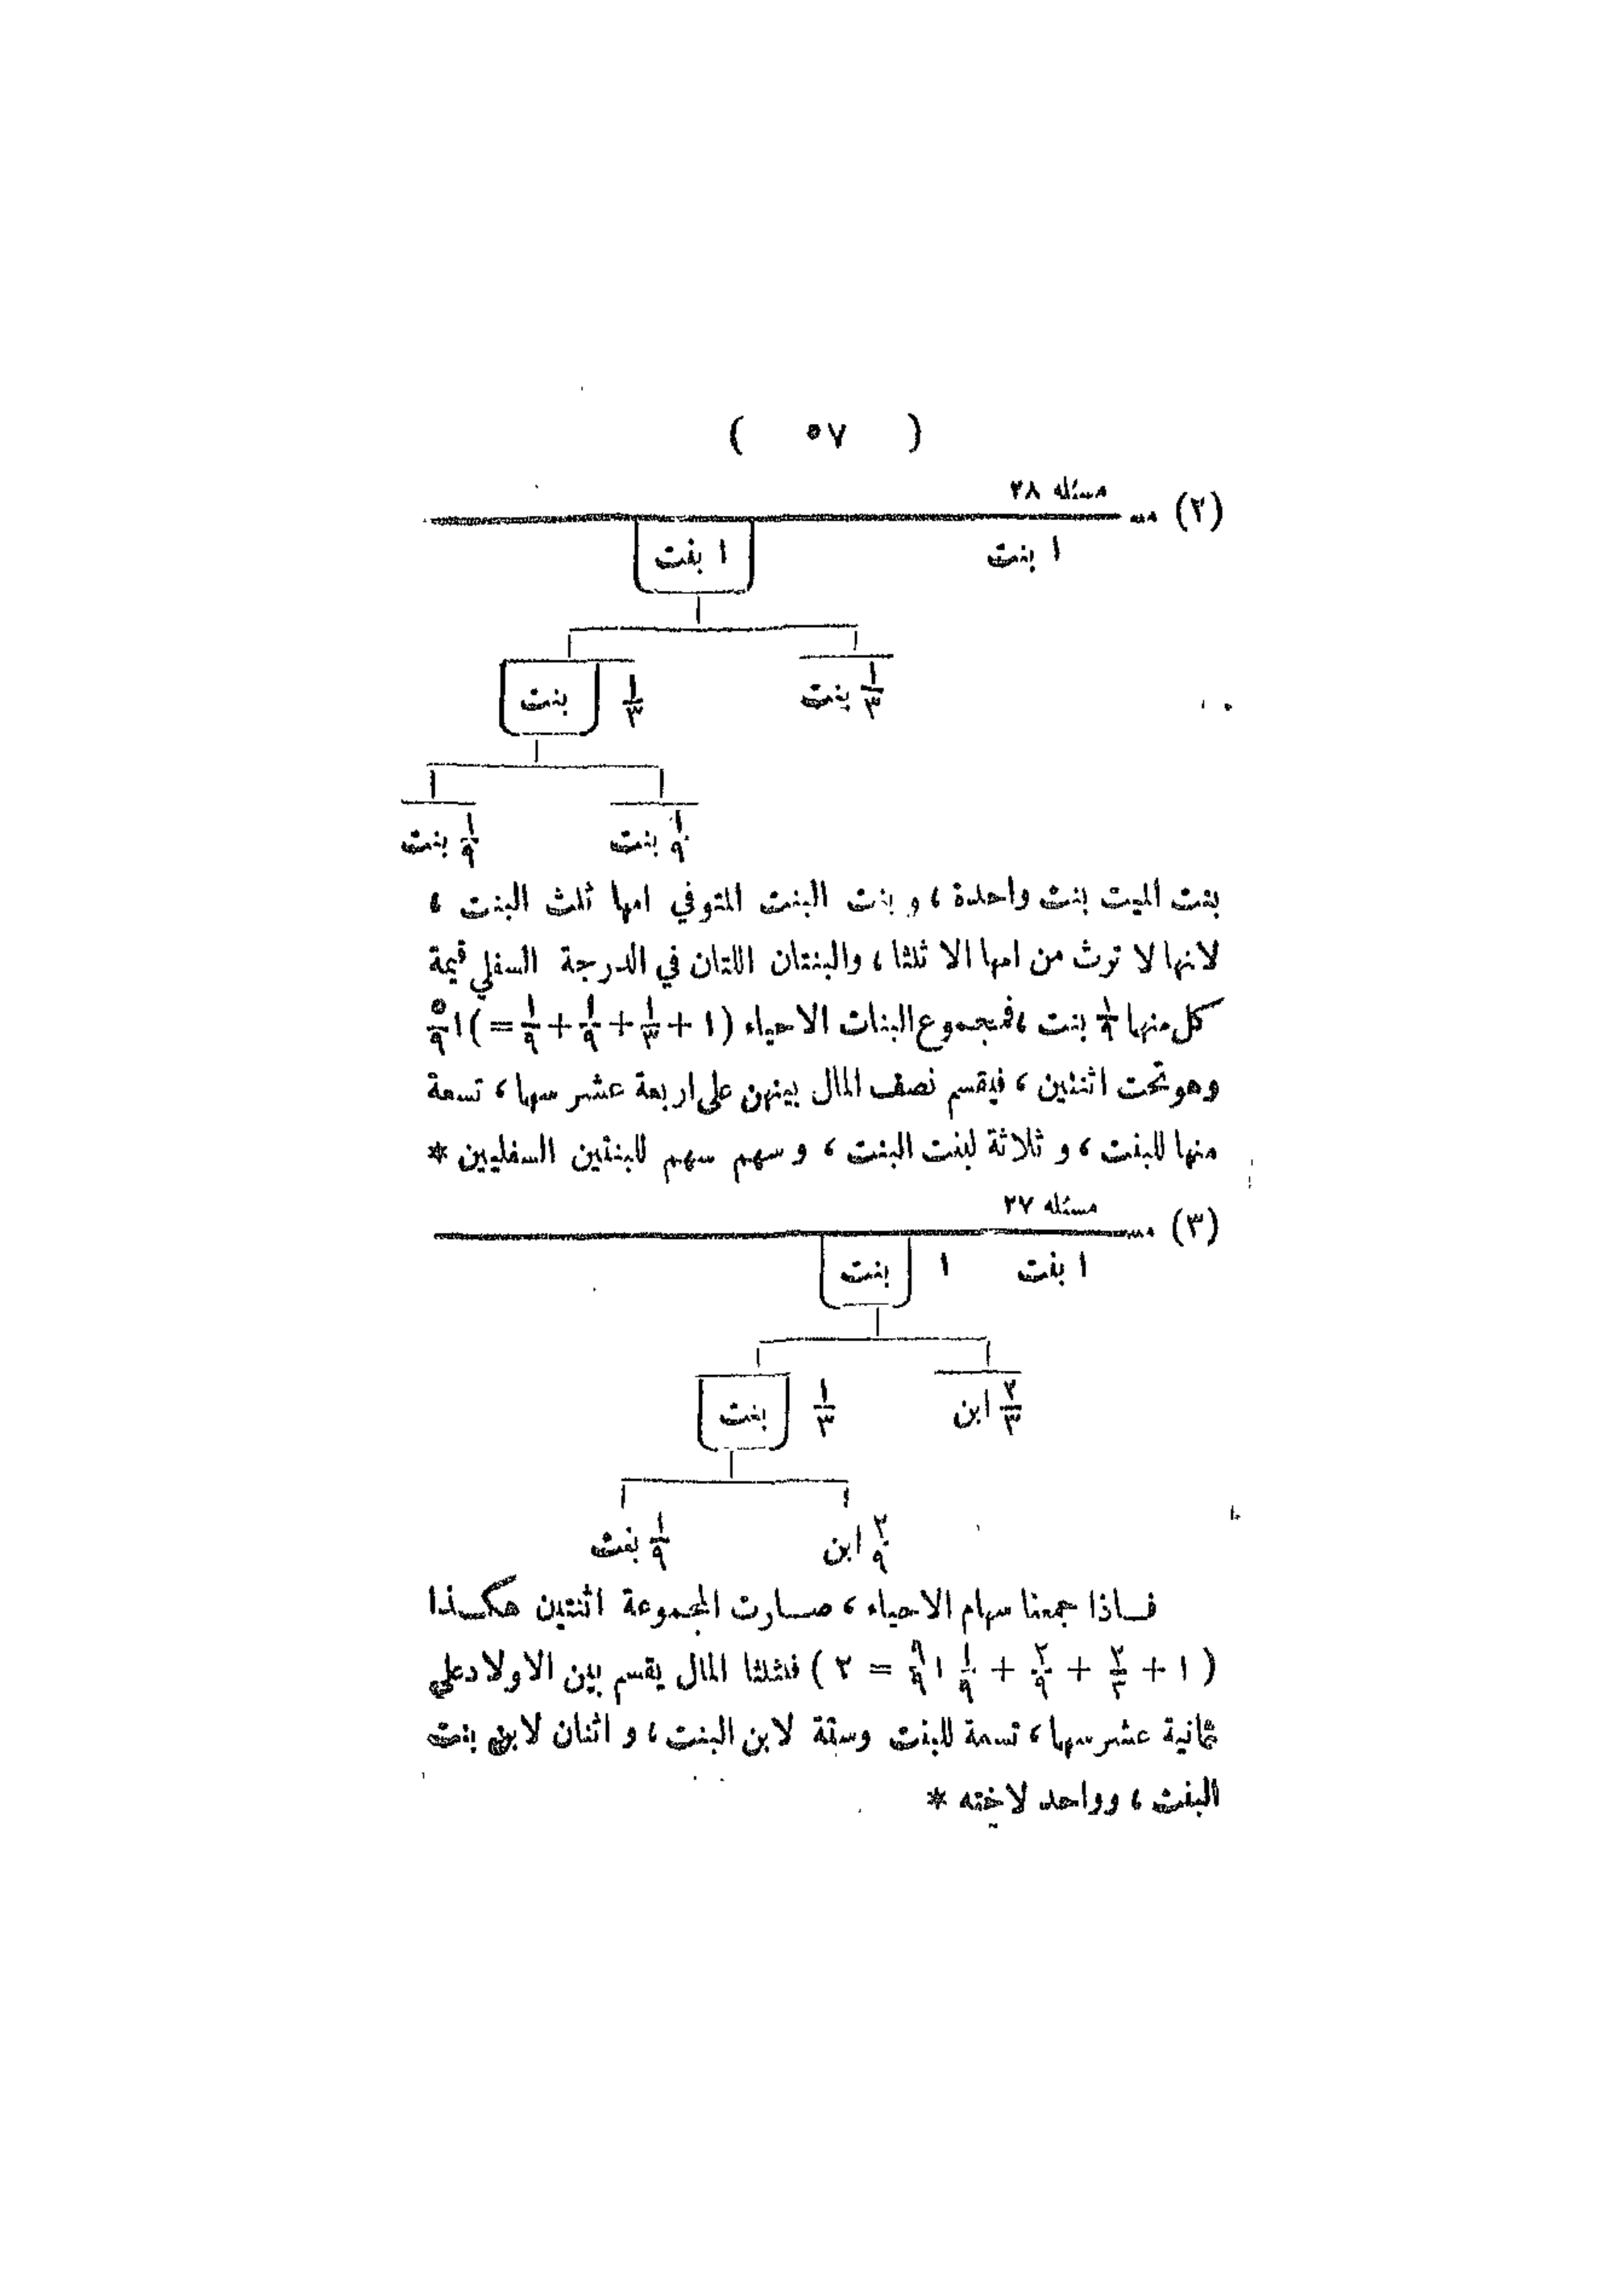 ( ٥٧ )
مسئله ٢٨
(٢) مـ
١ بنت ١ بنت
١/٣ بنت ١/٣ بنت
١/٩ بنت ١/٩ بنت
بنت الميت بنت واحدة ، و بنت البنت المتوفي امها ثلث البنت ،
لانها لا ترث من امها الا ثلثا ، والبنتان اللتان في الدرجة السفلي قيمة
كل منها ١/٩ بنت ، فمجموع البنات الاحياء (١ + ١/٣ + ١/٩ + ١/٩ =) ١ ٥/٩
وهو تحت اثنتين ، فيقسم نصف المال بينهن على اربعة عشر سهما ، تسعة
منها للبنت ، و ثلاثة لبنت البنت ، و سهم سهم للبنتين السفليين *
مسئله ٢٧
(٣) مـ
١ بنت ١ بنت
٢/٣ ابن ١/٣ بنت
٢/٩ ابن ١/٩ بنت
فـاذا جمعنا سهام الاحياء ، صـارت المجموعة اثنتين هكـذا
(١ + ٢/٣ + ٢/٩ + ١/٩ ١ ٩/٩ = ٢ ) فثلثا المال يقسم بين الاولاد علي
ثمانية عشر سهما ، تسعة للبنت وستة لابن البنت ، و اثنان لابن بنت
البنت ، وواحد لاخته *